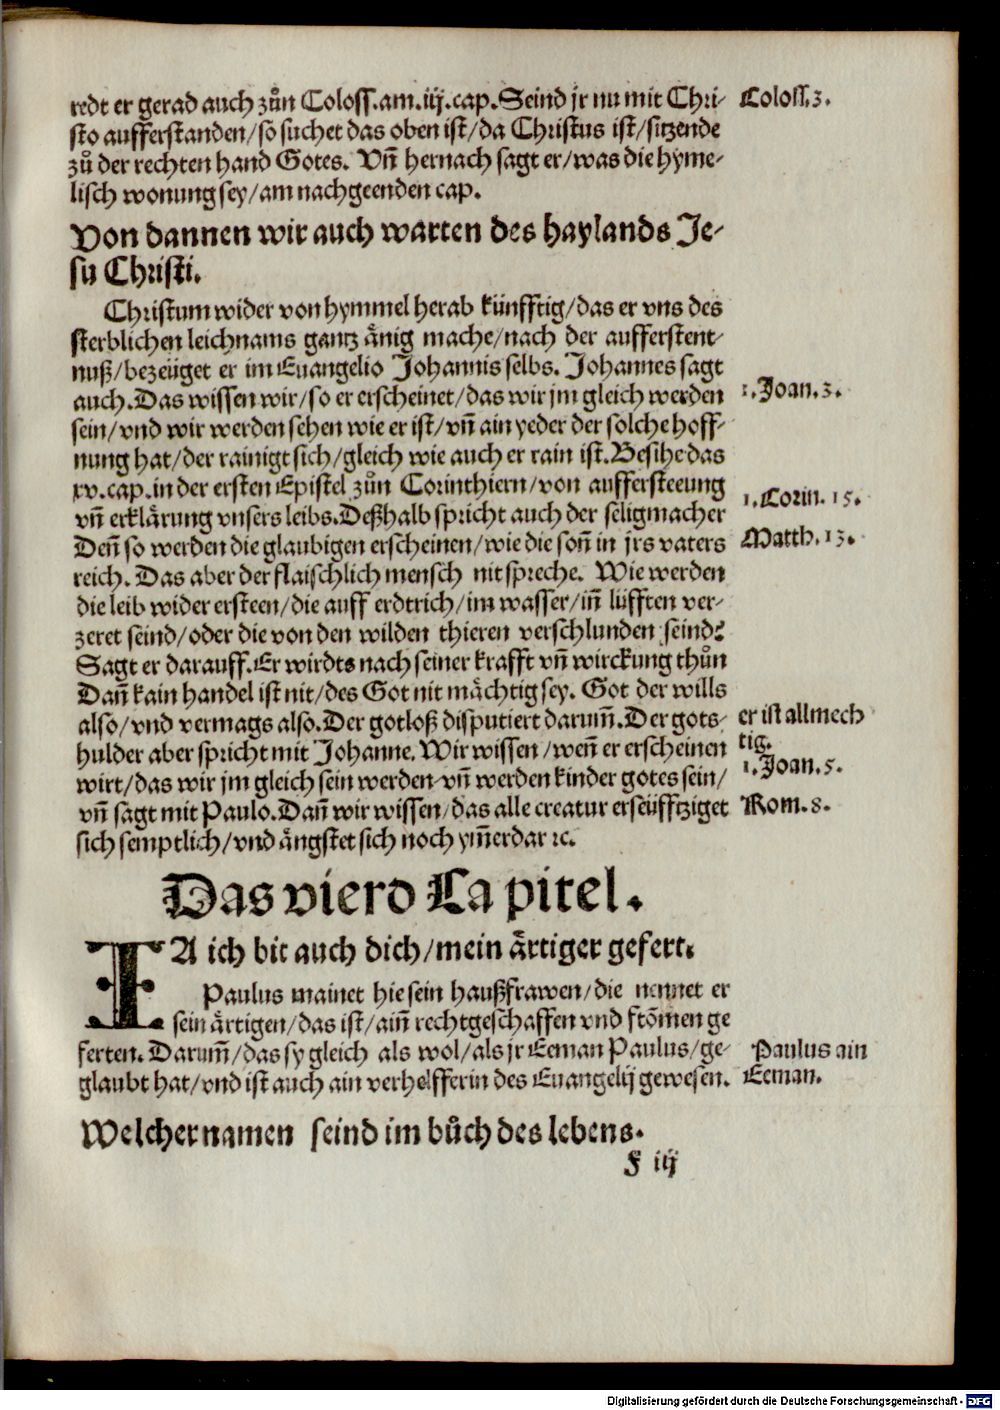 redt er gerad auch zůn Coloss.am.iij.cap.Seind jr nu mit Chri-
Coloss.3.
sto aufferstanden/so suchet das oben ist/da Christus ist/sitzende
zů der rechten hand Gotes. Vñ hernach sagt er/was die hyme-
lisch wonung sey/am nachgeenden cap.
Von dannen wir auch warten des haylands Je-
su Christi.
Christum wider von hymmel herab künfftig/das er vns des
sterblichen leichnams gantz änig mache/nach der aufferstent-
nuß/bezeüget er im Euangelio Johannis selbs. Johannes sagt
auch.Das wissen wir/so er erscheinet/das wir jm gleich werden
1.Joan.3.
sein/vnd wir werden sehen wie er ist/vñ ain yeder der solche hoff-
nung hat/der rainigt sich/gleich wie auch er rain ist.Besihe das
xv.cap.in der ersten Epistel zůn Corinthiern/von auffersteeung
1.Corin.15.
vñ erklärung vnsers leibs.Deßhalb spricht auch der seligmacher
Deñ so werden die glaubigen erscheinen/wie die soñ in jrs vaters
Matth.13.
reich. Das aber der flaischlich mensch nit spreche. Wie werden
die leib wider ersteen/die auff erdtrich/im wasser/iñ lüfften ver-
zeret seind/oder die von den wilden thieren verschlunden seind?
Sagt er darauff.Er wirdts nach seiner krafft vñ wirckung thůn
Dañ kain handel ist nit/des Got nit mächtig sey. Got der wills
also/vnd vermags also.Der gotloß disputiert darum̃.Der gots-
er ist allmech
tig.
hulder aber spricht mit Johanne.Wir wissen/weñ er erscheinen
wirt/das wir jm gleich sein werden vñ werden kinder gotes sein/
1.Joan.5.
vñ sagt mit Paulo.Dañ wir wissen/das alle creatur erseüfftziget
Rom.8.
sich semptlich/vnd ängstet sich noch ym̃erdar ꝛc.
Das vierd Capitel.
JA ich bit auch dich/mein ärtiger gefert.
Paulus mainet hie sein haußfrawen/die nennet er
sein ärtigen/das ist/aiñ rechtgeschaffen vnd frõmen ge
ferten.Darum̃/das sy gleich als wol/als jr Eeman Paulus/ge-
Paulus ain
glaubt hat/vnd ist auch ain verhelfferin des Euangelij gewesen.
Eeman.
Welcher namen seind im bůch des lebens.
F iij
Digitalisierung gefördert durch die Deutsche Forschungsgemeinschaft - DFG